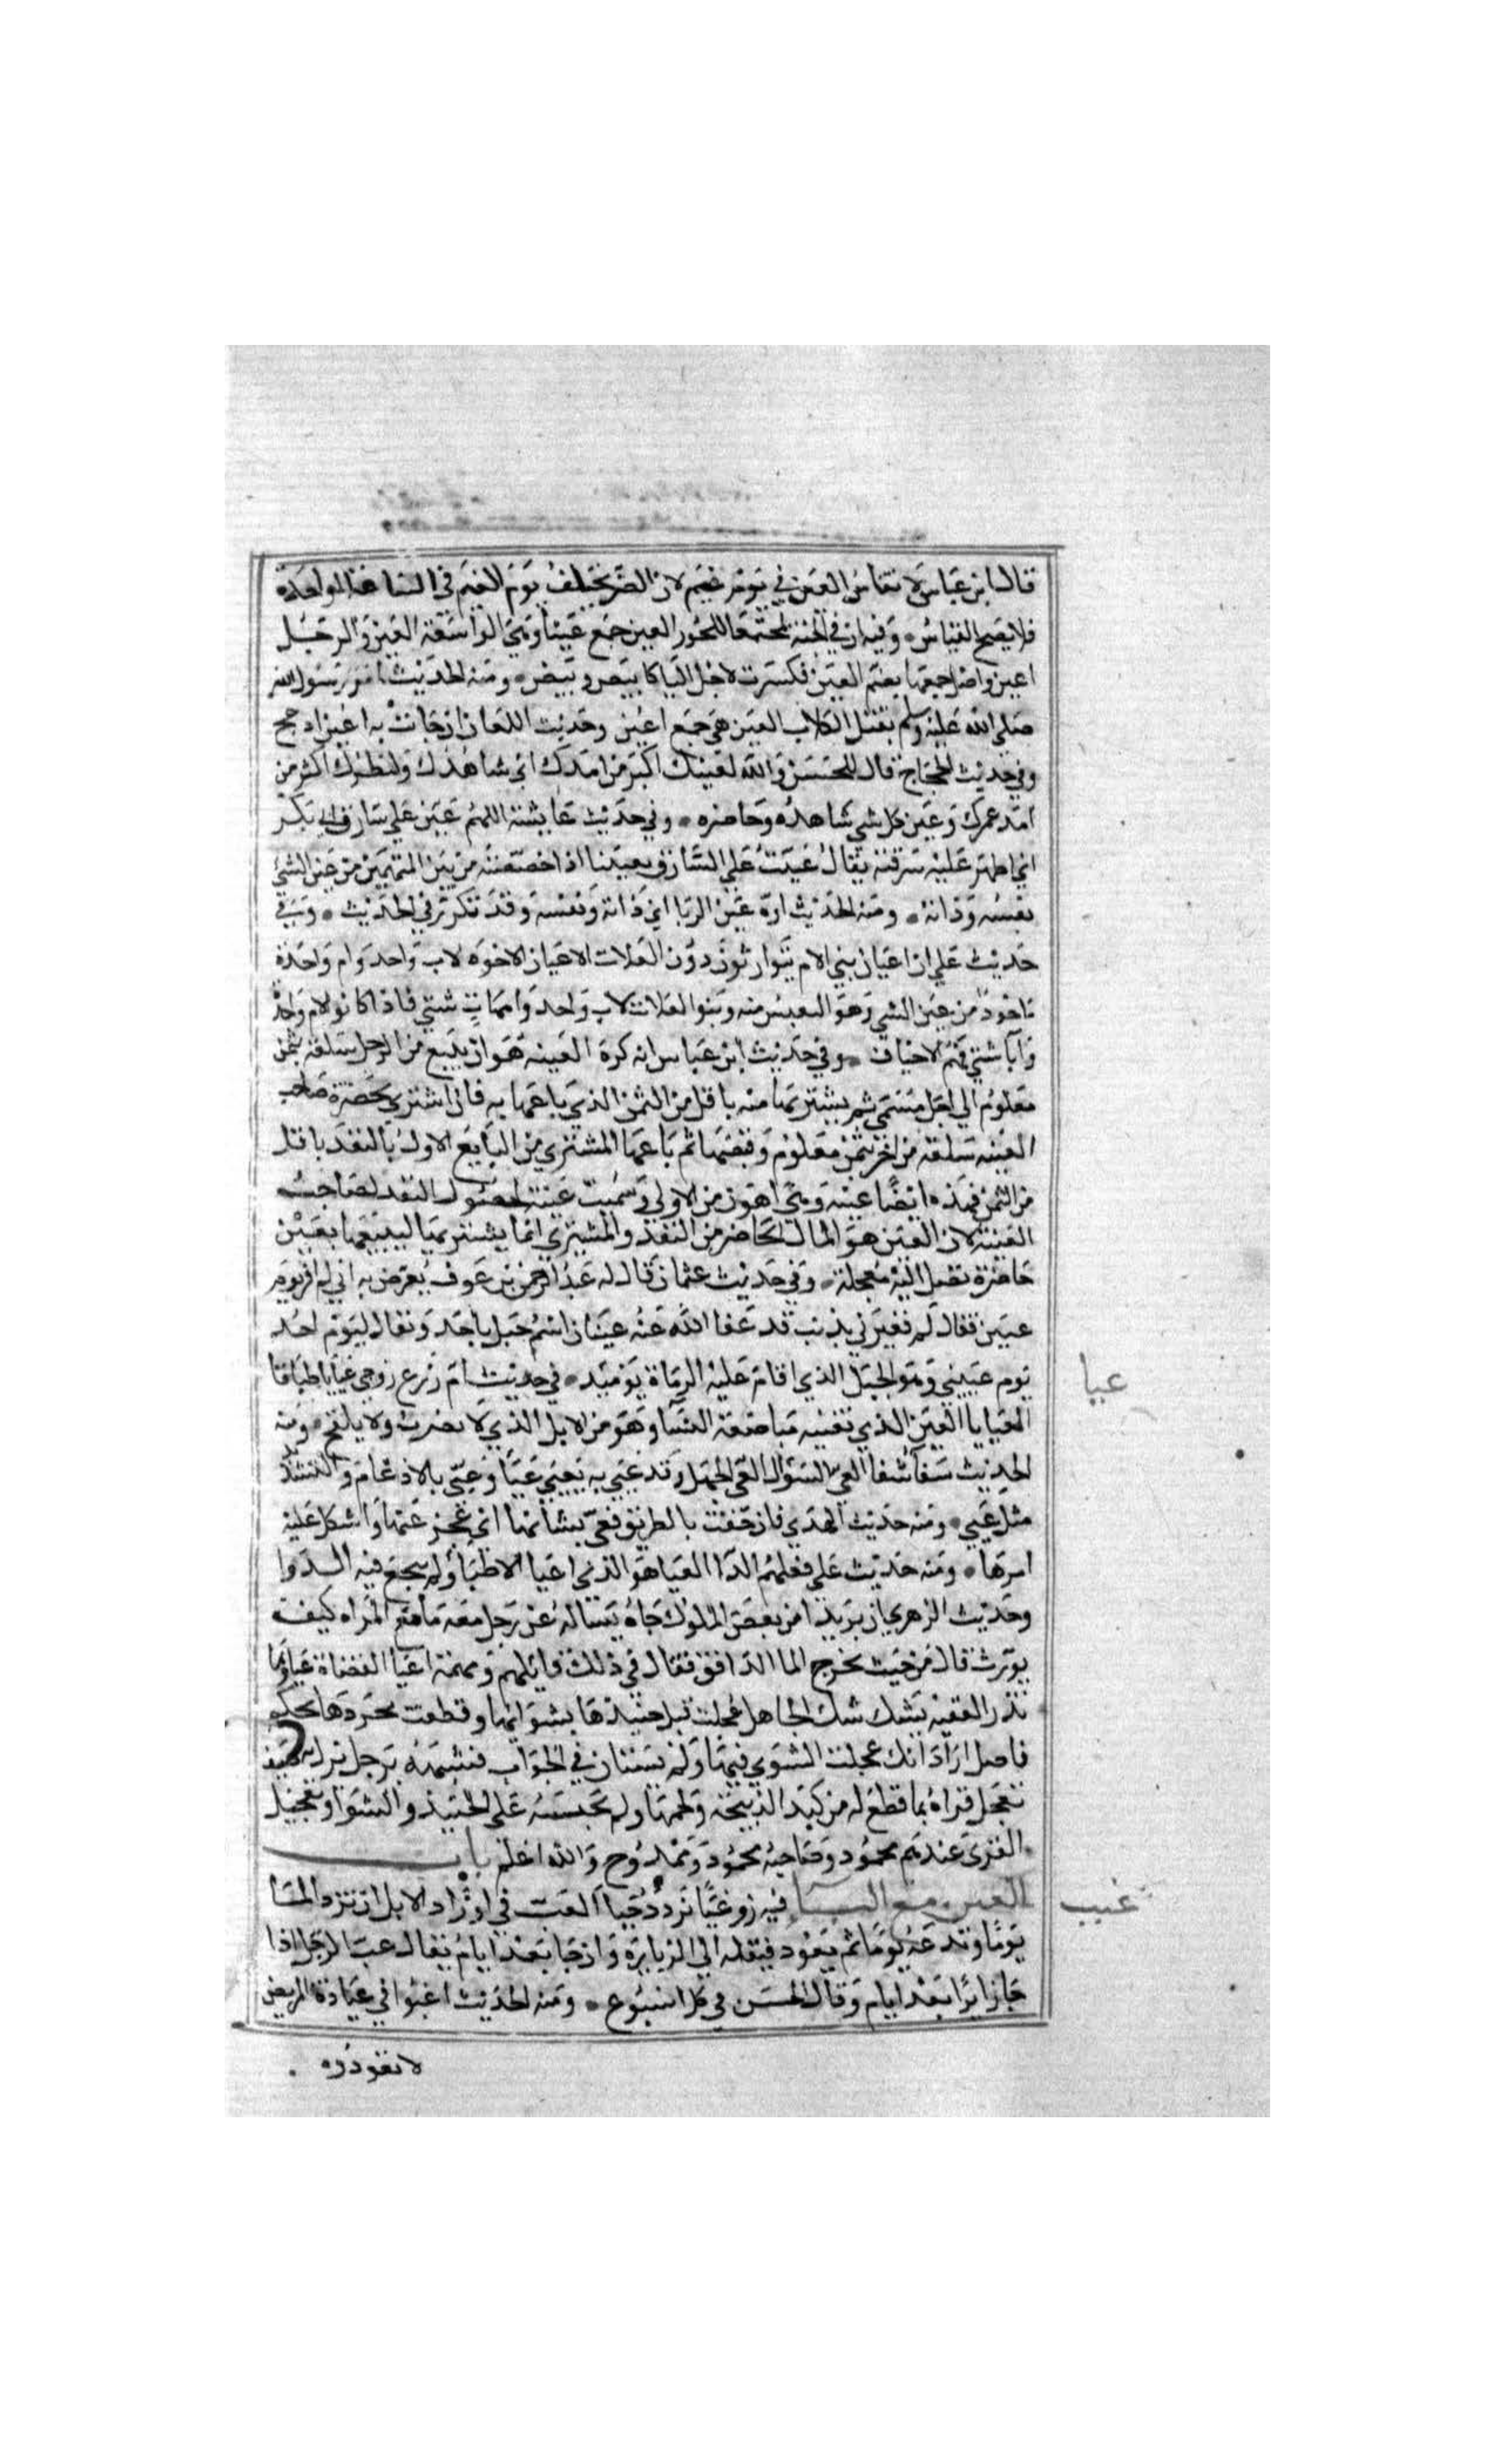 قال ابن عباس لا تقاس العين في يوم غيم لان الضو يختلف يوم الغيم في الساعة الواحدة
فلا يصح القياس • وفيه ان في الجنة لمجتمعا للحور العين جمع عينا وهي الواسعة العين والرجل
اعين واصل جمعها بضم العين فكسرت لاجل اليا كابيض وبيض • ومنه الحديث امر رسول الله
صلى الله عليه وسلم بقتل الكلاب العين هي جمع اعين وحديث اللعان ان جات به اعين ادعج
وفي حديث الحجاج قال للحسن والله لعينك اكبر من امدك اي شاهدك ومنظرك اكثر من
امد عمرك وعين كل شي شاهده وحاضره • وفي حديث عايشة اللهم عين على سارق ابي بكر
اي اظهر عليه سرقته يقال عينت على السارق تعيينا اذا خصصته من بين المتهمين من عين الشي
نفسه وذاته • ومنه الحديث اوه عين الربا اي ذاته ونفسه وقد تكرر في الحديث • وفي
حديث علي ان اعيان بني الام يتوارثون دون العلات الاعيان الاخوة لاب واحد وام واحدة
ماخوذ من عين الشي وهو النفيس منه وبنو العلات لاب واحد وامهات شتي فاذا كانوا لام واحدة
وابا شتي فهم الاخياف • وفي حديث ابن عباس انه كره العينه هو ان يبيع من الرجل سلعة بثمن
معلوم الي اجل مسمى ثم يشتريها منه باقل من الثمن الذي باعها به فان اشترى بحضرة صاحب
العينه سلعة من اخر بثمن معلوم وقبضها ثم باعها المشتري من البايع الاول بالنقد باقل
من الثمن فهذه ايضا عينه وهي اهون من الاولى وسميت عينة لحصول النقد لصاحب
العينة لان العين هو المال الحاضر من النقد والمشتري انما يشتريها ليبيعها بعين
حاضرة تصل اليه معجلة • وفي حديث عثمان قال له عبد الرحمن بن عوف يعرض به اني لم افر يوم
عينين فقال لم تعيرني بذنب قد عفا الله عنه عينان اسم جبل باحد ويقال ليوم احد
يوم عينين وهو الجبل الذي اقام عليه الرماة يوميد • في حديث ام زرع زوجي عيايا طباقا
العيايا العنين الذي تعييه مباضعة النسا وهو من الابل الذي لا يضرب ولا يلقح • ومنه
الحديث شفا العي السؤال العي الجهل وقد عيي به يعيي عيا وعي بالادغام والتشديد
مثل عيي • ومنه حديث الهدي فازحفت بالطريق فعي بشانها اي عجز عنها واشكل عليه
امرها • ومنه حديث علي فعلهم الدا العيا هو الذي اعيا الاطبا ولم ينجع فيه الدوا
وحديث الزهري ان بريدا من بعض الملوك جاه يساله عن رجل معه ما مع المراه كيف
يورث قال من حيث يخرج الما الدافق فقال في ذلك قايلهم ومهمة اعيا القضاة عياوها
تذر الفقيه يشك شك الجاهل عجلت قبل حنيذها بشوايها وقطعت محردها بحكم
فاصل اراد انك عجلت الفتوي فيها ولم تستان في الجواب فشبهه برجل نزل به ضيف
فعجل قراه بما قطع له من كبد الذبيحة ولحمها ولم يحبسه على الحنيذ والشوا وتعجيل
القرى عندهم محمود وصاحبه محمود وممدوح والله اعلم باب
الغين مع البا فيه زر غبا تزدد حبا الغب في اوراد الابل ان ترد الما
يوما وتدعه يوما ثم يعود فنقله الي الزيارة وان جا بعد ايام يقال غب الرجل اذا
جا زايرا بعد ايام وقال الحسن في كل اسبوع • ومنه الحديث اغبوا في عيادة المريض
لا تعودوه
عيا
غبب